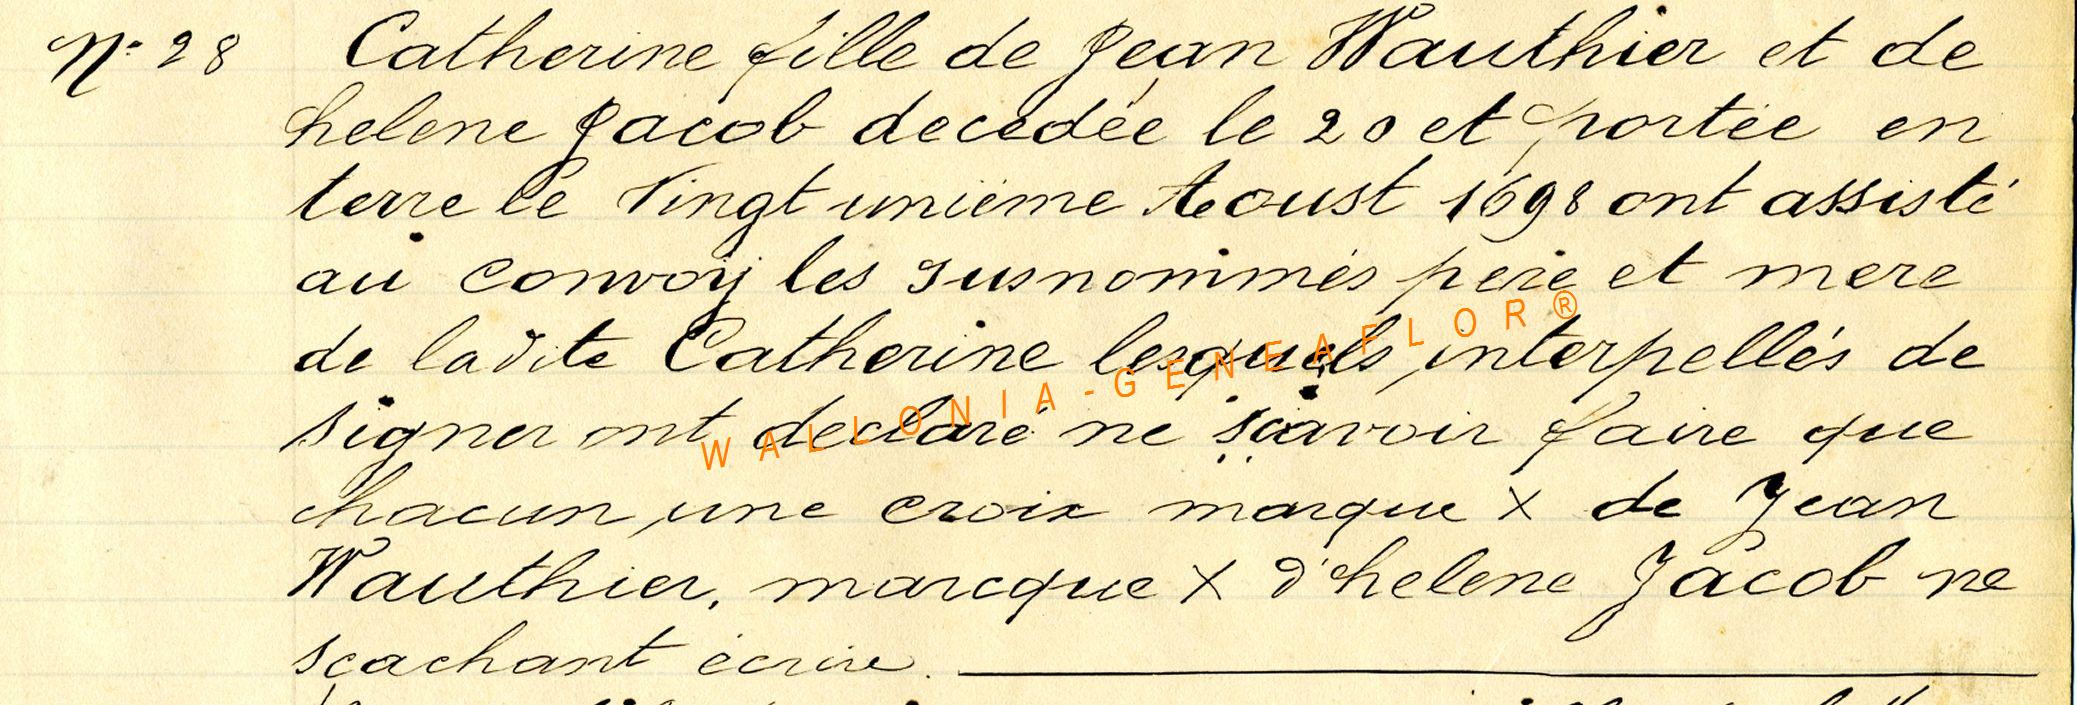 N° 28 Catherine fille de Jean Wauthier et de
helene Jacob decedée le 20 et portée en
terre le Vingt unième Aoust 1698 ont assisté
au convoij les susnommés pere et mere
de ladite Catherine lesquels interpellés de
signer ont declaré ne sçavoir faire que
chacun une croix marque X de Jean
Wauthier, marcque X d'helene Jacob ne
scachant écrire.
WALLONIA-GENEAFLOR®